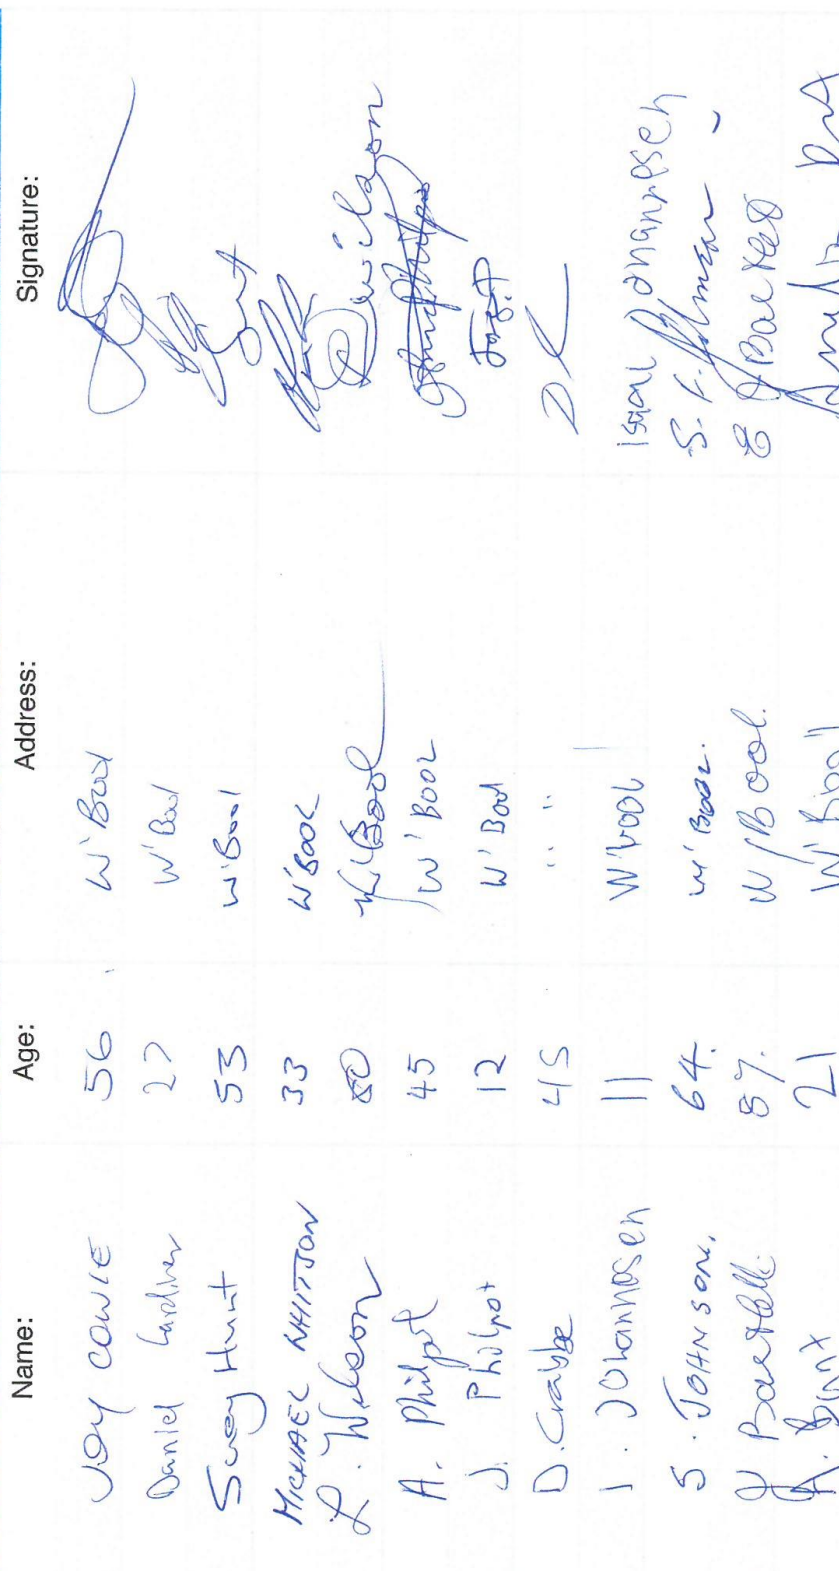 Name: Age: Address: Signature:
Joy COWIE 56 W'Bool
Daniel Gardiner 27 W'Bool
Suey Hunt 53 W'Bool Hunt
MICHAEL WHITSON 33 W'BOOL
L. Wilson 80 W'Bool L Wilson
A. Philpot 45 W'BOOL
J. Philpot 12 W'Bool
D. Crabbe 45 " " DC
I. Johannesen 11 W'bool Johannesen
S. JOHNSON. 64. W'BOOL. S. F. Johnson
87. W/Bool.
21 W'Bool